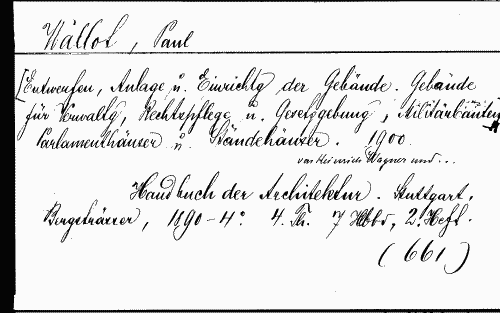 Wallot, Paul
[Entwerfen, Anlage u. Einrichtg der Gebäude. Gebäude
für Verwaltg, Rechtspflege u. Gesetzgebung, Militärbauten
Parlamenthäuser u. Ständehäuser. 1900
von Heinrich Wagner und...
Handbuch der Architektur. Stuttgart,
Bergsträsser, 1890 - 4°. 4. Th. 7 Hbbd, 2. Heft.
(661)